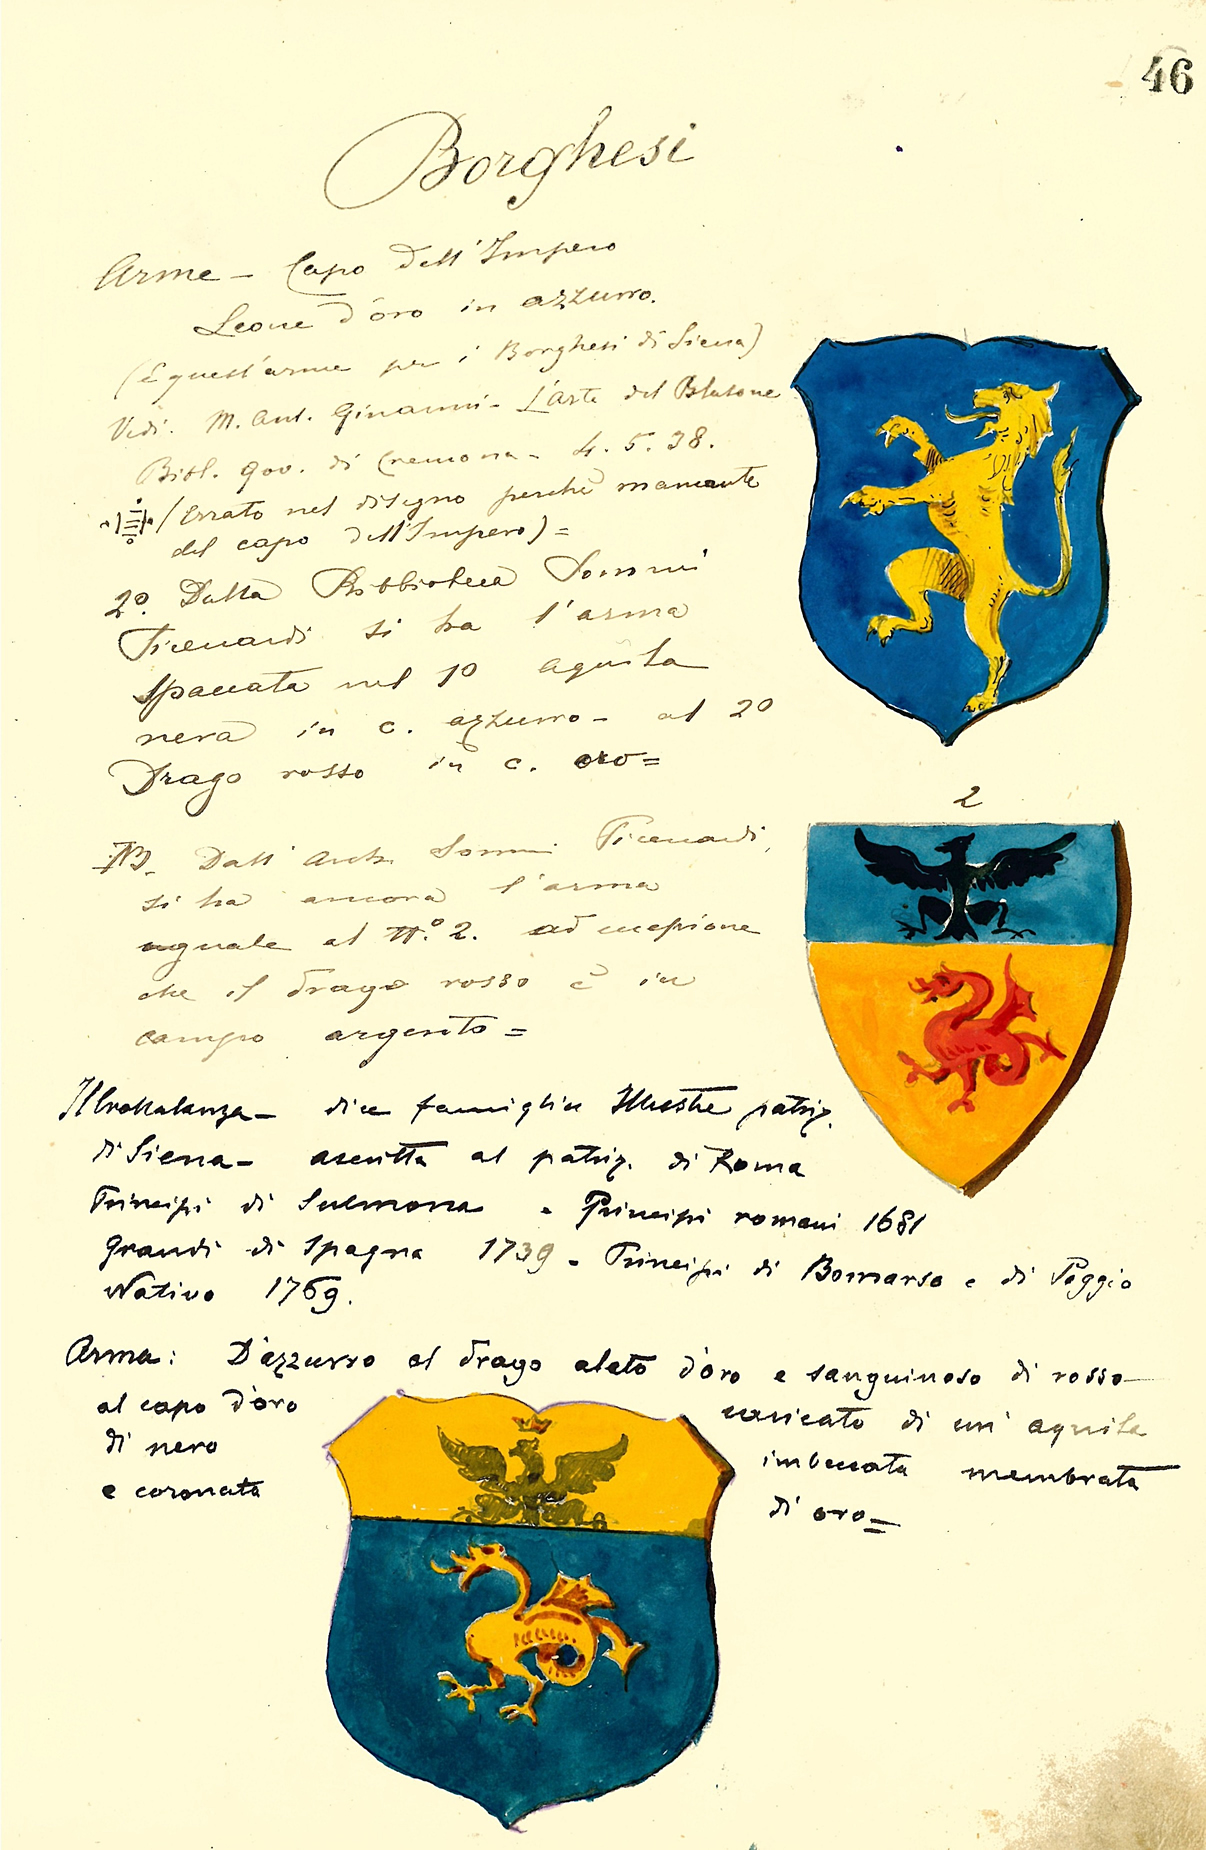 46
Borghesi
Arme - Capo dell'Impero
Leone d'oro in azzurro.
(È quest'arme per i Borghesi di Siena)
Vedi. M. Ant. Ginanni - L'Arte del Blasone
Bibl. gov. di Cremona - 4. 5. 38.
(errato nel disegno perchè mancante
del capo dell'Impero) =
2º. Dalla Biblioteca Sommi
Picenardi si ha l'arma
spaccata nel 1º aquila
nera in c. azzurro - al 2º
Drago rosso in c. oro =
2
NB. Dall' Arch. Sommi Picenardi,
si ha ancora l'arma
uguale al N.º 2. ad eccezione
che il drago rosso è in
campo argento =
dice famiglia Illustre patriz.
di Siena - ascritta al patriz. di Roma
Principi di Sulmona - Principi romani 1681
Grandi di Spagna 1739 - Principi di Bomarso e di Poggio
Nativo 1769.
Arma: D'azzurro al drago alato d'oro e sanguinoso di rosso
al capo d'oro caricato di un' aquila
di nero imbeccata membrata
e coronata di oro =